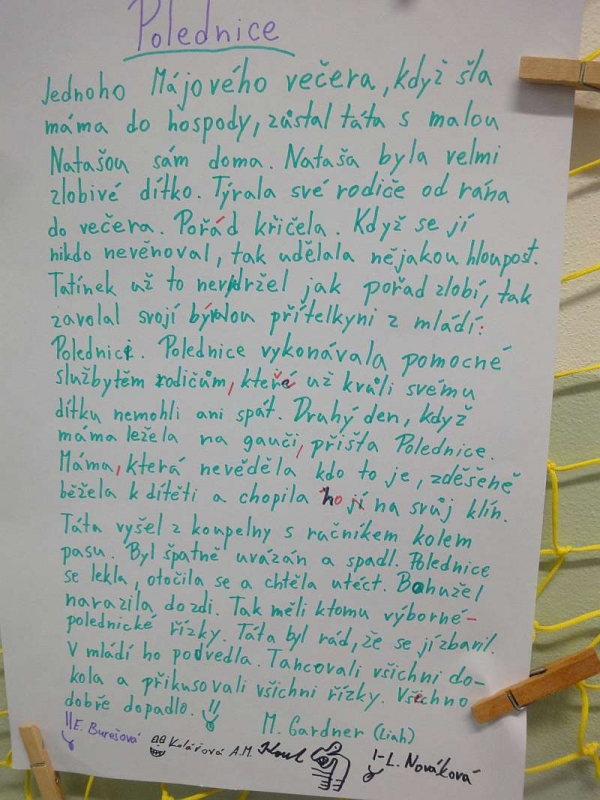 Polednice
Jednoho Májového večera, když šla
máma do hospody, zůstal táta s malou
Natašou sám doma. Nataša byla velmi
zlobivé dítko. Týrala své rodiče od rána
do večera. Pořád křičela. Když se jí
nikdo nevěnoval, tak udělala nějakou hloupost.
Tatínek už to nevydržel jak pořád zlobí, tak
zavolal svojí bývalou přítelkyni z mládí:
Polednici. Polednice vykonávala pomocné
služby těm rodičům, kteří už kvůli svému
dítku nemohli ani spát. Druhý den, když
máma ležela na gauči, přišla Polednice.
Máma, která nevěděla kdo to je, zděšeně
běžela k dítěti a chopila ho jí na svůj klín.
Táta vyšel z koupelny s ručníkem kolem
pasu. Byl špatně uvázán a spadl. Polednice
se lekla, otočila se a chtěla utéct. Bohužel
narazila do zdi. Tak měli k tomu výborné
polednické řízky. Táta byl rád, že se jí zbavil.
V mládí ho podvedla. Tancovali všichni do-
kola a přikusovali všichni řízky. Všechno
dobře dopadlo. !!
M. Gardner (Liah)
E. Burešová Kolářová A.M. L. Nováková